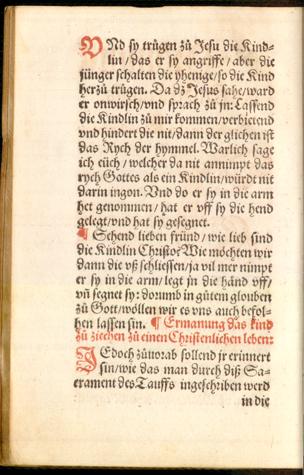 VNd sy trůgen zů Jesu die Kind⸗
lin / das er sy angriffe / aber die
jünger schalten die yhenige / so die Kind
herzů trůgen. Da dz Jesus sahe / ward
er onwirsch / vnd sprach zů jn: Lassend
die Kindlin zů mir kommen / verbietend
vnd hindert die nit / dann der glichen ist
das Rych der hymmel. Warlich sage
ich eüch / welcher da nit annimpt das
rych Gottes als ein Kindlin / würdt nit
darin ingon. Vnd do er sy in die arm
het genommen / hat er vff sy die hend
gelegt / vnd hat sy gesegnet.
¶ Sehend lieben fründ / wie lieb sind
die Kindlin Christo: Wie möchten wir
dann die vß schliessen / ja vil mer nimpt
er sy in die arm / legt jn die händ vff /
vñ segnet sy: dorumb in gůtem glouben
zů Gott / wöllen wir es vns auch befol⸗
hen lassen sin. ¶ Ermanung das kind
zů ziechen zů einen Christenlichen leben:
JEdoch zůuorab sollend jr erinnert
sin / wie das man durch diß Sa⸗
crament des Tauffs ingeschriben werd
in die